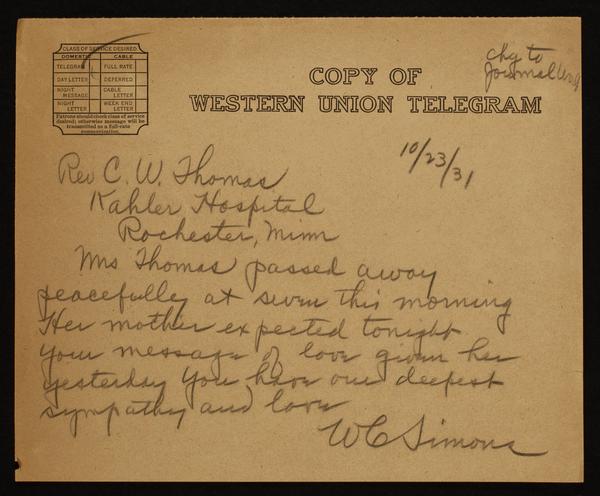 CLASS OF SERVICE DESIRED
DOMESTIC CABLE
TELEGRAM FULL RATE
DAY LETTER DEFERRED
NIGHT MESSAGE CABLE LETTER
NIGHT LETTER WEEK END LETTER
Patrons should check class of service
desired; otherwise message will be
transmitted as a full-rate
communication.
chg to
Journal
COPY OF
WESTERN UNION TELEGRAM
10/23/31
Rev C. W. Thomas
Kahler Hospital
Rochester, Minn
Mrs Thomas passed away
peacefully at seven this morning
Her mother expected tonight
Your message of love given her
yesterday You have our deepest
sympathy and love
W C Simons